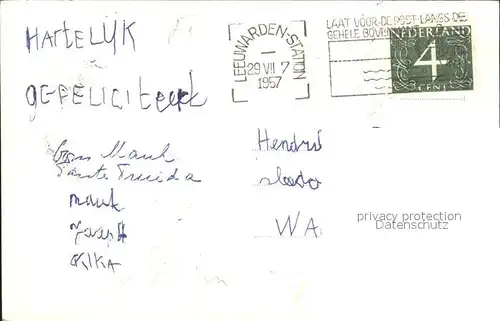 HARTELIJK
GEFELICITEERD
Oom Mauk
Tante Truida
mauk
Jaap
LEEUWARDEN-STATION
29 VII 7
1957
LAAT VÓÓR DE POST LANGS DE
GEHELE
NEDERLAND
4
CENT
Hendri
WA
privacy protection
Datenschutz